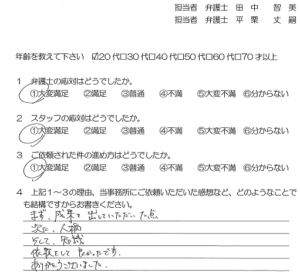 担当者 弁護士 田中 智美
担当者 弁護士 平栗 丈嗣
年齢を教えて下さい ☑20代□30代□40代□50代□60代□70才以上
1 弁護士の応対はどうでしたか。
①大変満足 ②満足 ③普通 ④不満 ⑤大変不満 ⑥分からない
2 スタッフの応対はどうでしたか。
①大変満足 ②満足 ③普通 ④不満 ⑤大変不満 ⑥分からない
3 ご依頼された件の進め方はどうでしたか。
①大変満足 ②満足 ③普通 ④不満 ⑤大変不満 ⑥分からない
4 上記1~3の理由、当事務所にご依頼いただいた感想など、どのようなことで
も結構ですからお書きください。
まず、成果を出していただいた点
次に、人柄
そして、知識
依頼をして良かったです。
ありがとうございました。